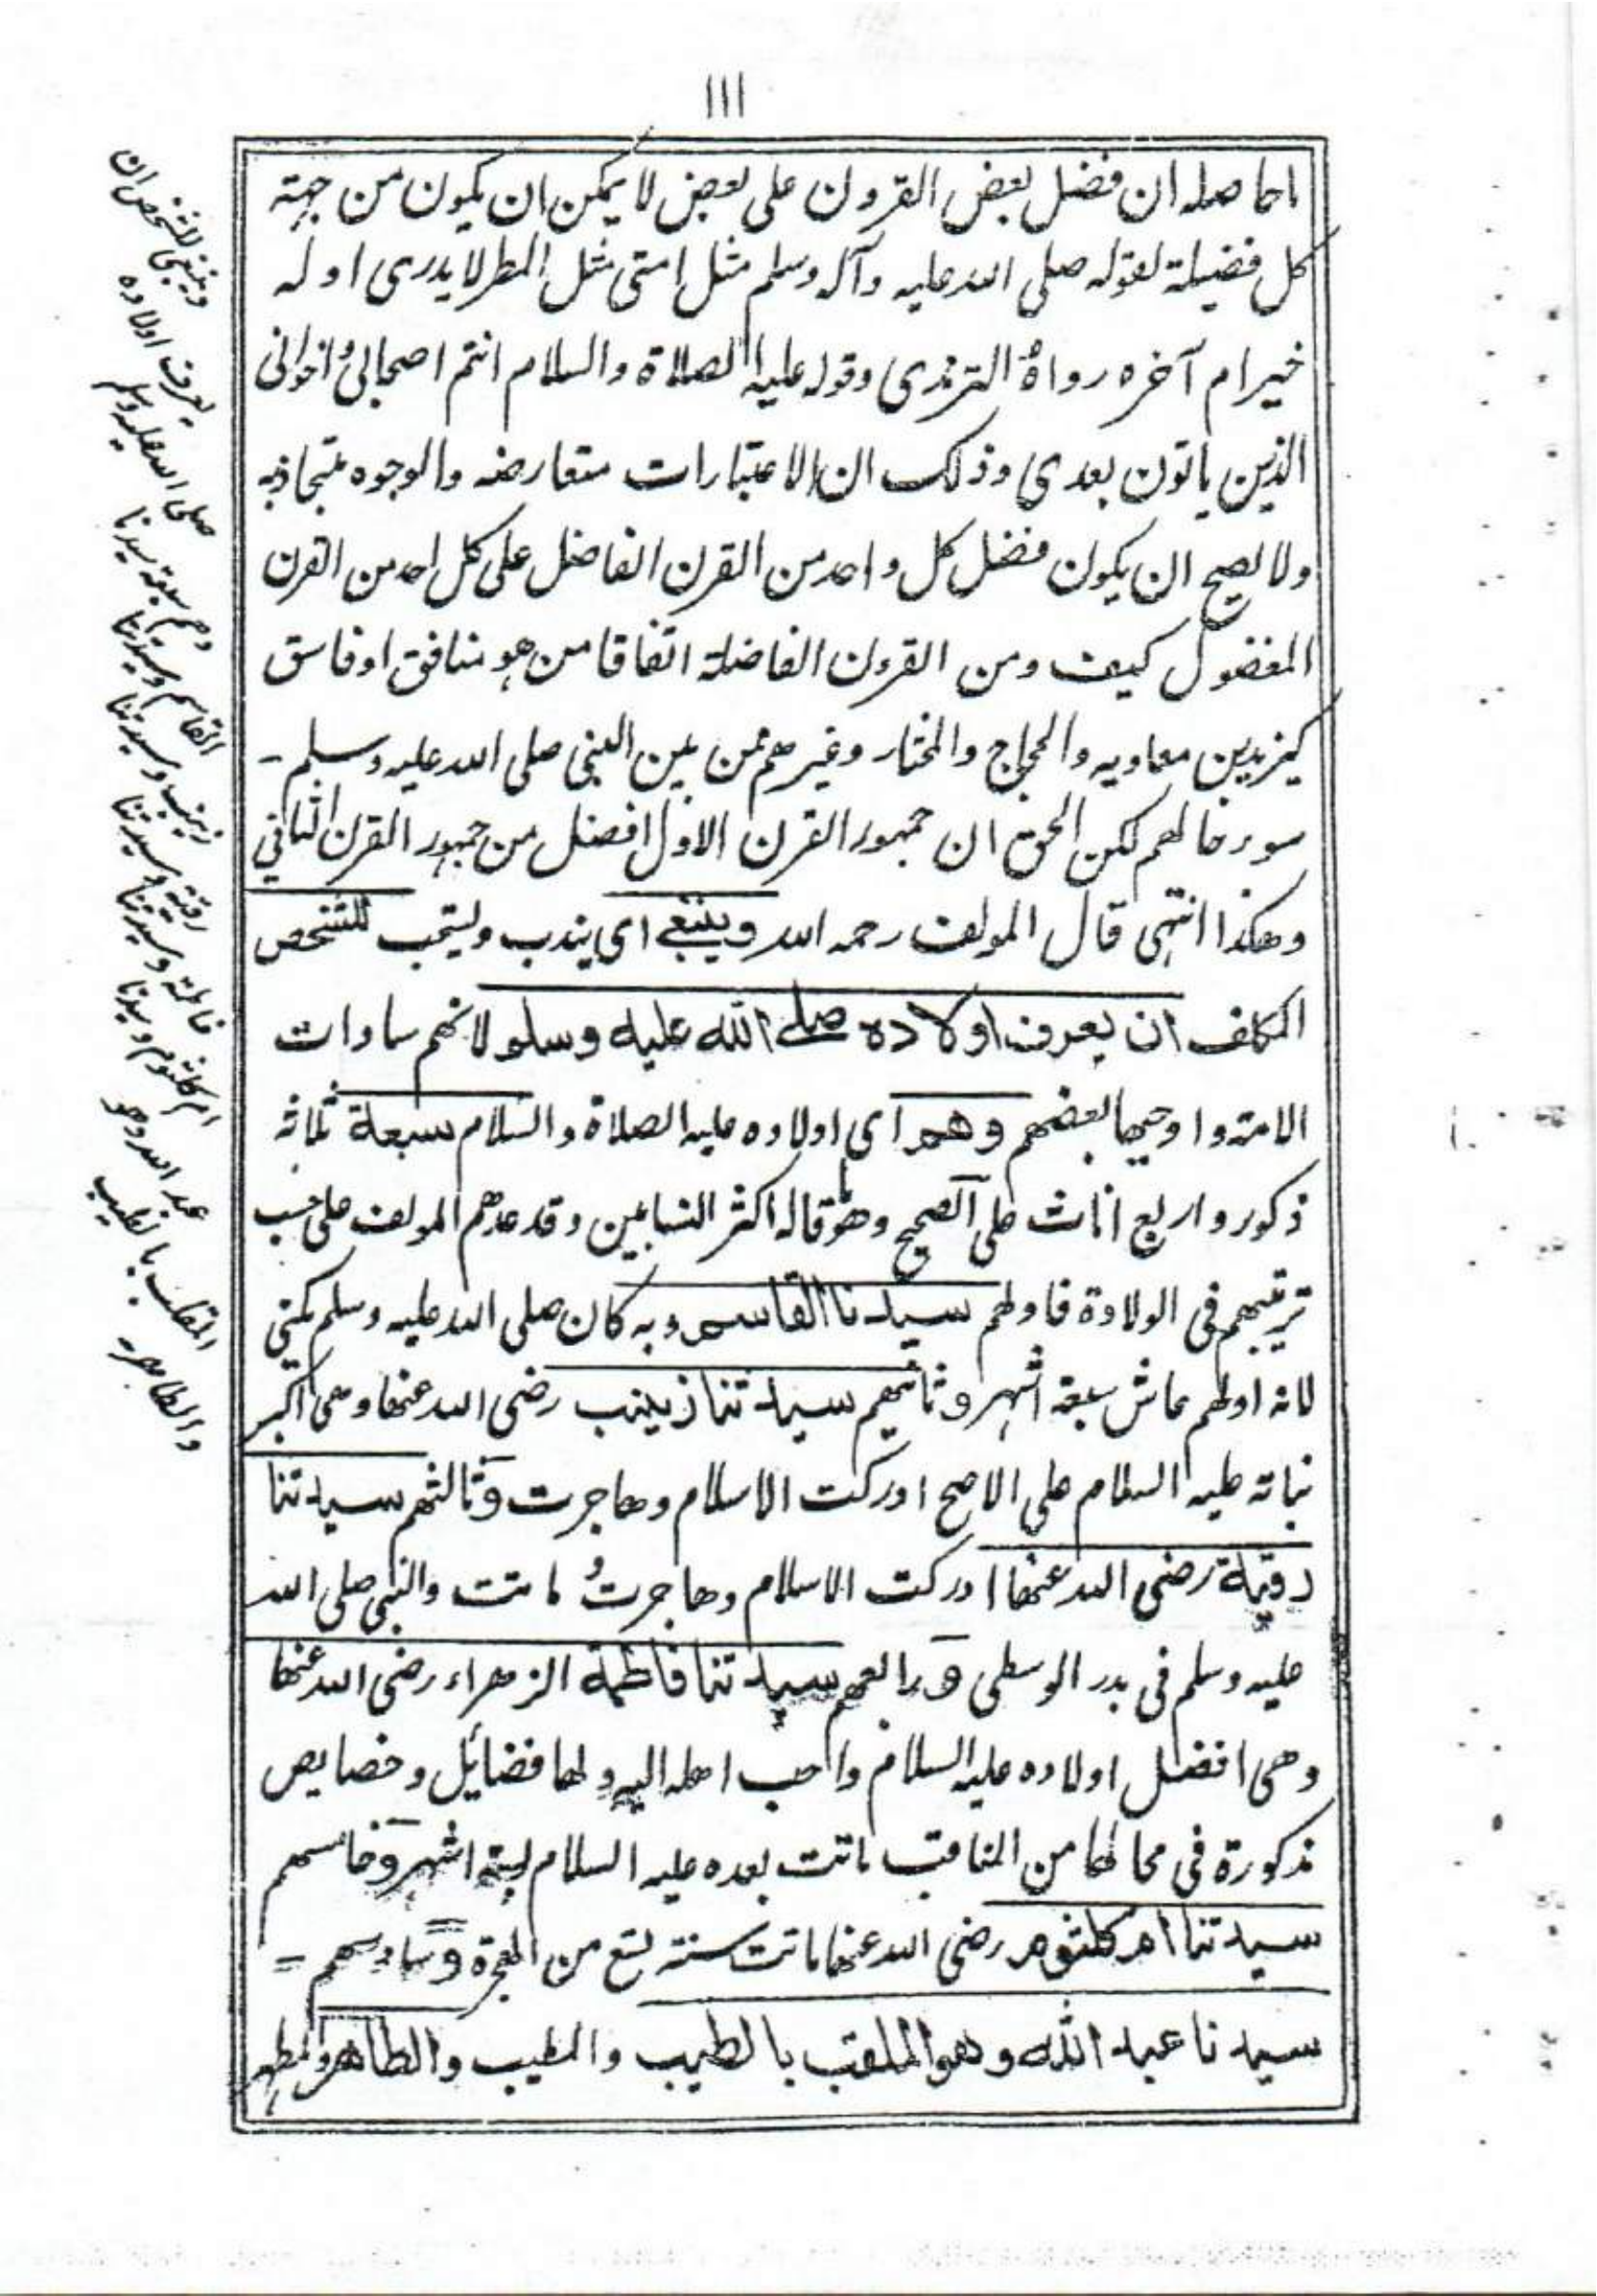 ١١١
ماحاصله ان فضل بعض القرون على بعض لا يمكن ان يكون من جهة
كل فضيلة لقوله صلى الله عليه وآله وسلم مثل امتى مثل المطر لا يدرى اوله
خير ام آخره رواه الترمذى وقوله عليه الصلاة والسلام انتم اصحابى واخوانى
الذين ياتون بعدى وذلك ان الاعتبارات متعارضه والوجوه متجاذبه
ولا يصح ان يكون فضل كل واحد من القرن الفاضل على كل احد من القرن
المفضول كيف ومن القرون الفاضلة اتفاقا من هو منافق او فاسق
كيزيد بن معاويه والحجاج والمختار وغيرهم ممن بين النبى صلى الله عليه وسلم -
سوء حالهم لكن الحق ان جمهور القرن الاول افضل من جمهور القرن الثانى
وهكذا انتهى قال المولف رحمه الله وينبغى اى يندب ويستحب للشخص
المكلف ان يعرف اولاده صلى الله عليه وسلم لانهم سادات
الامة واوجبها بعضهم وهم اى اولاده عليه الصلاة والسلام سبعة ثلاثة
ذكور واربع اناث على الصحيح وهو ما قاله اكثر النسابين وقد عدهم المولف على حسب
ترتيبهم فى الولادة فاولهم سيدنا القاسم وبه كان صلى الله عليه وسلم يكنى
لانه اولهم عاش سبعة اشهر وثانيهم سيدتنا زينب رضى الله عنها وهى اكبر
بناته عليه السلام على الاصح ادركت الاسلام وهاجرت وثالثهم سيدتنا
رقية رضى الله عنها ادركت الاسلام وهاجرت و ماتت والنبى صلى الله
عليه وسلم فى بدر الوسطى ورابعهم سيدتنا فاطمة الزهراء رضى الله عنها
وهى افضل اولاده عليه السلام واحب اهله اليه ولها فضائل وخصايص
مذكورة فى محالها من المناقب ماتت بعده عليه السلام بستة اشهر وخامسهم
سيدتنا ام كلثوم رضى الله عنها ماتت سنة تسع من الهجرة وسادسهم =
سيدنا عبد الله وهو الملقب بالطيب والمطيب والطاهر والمطهر
وينبغى للشخص ان
يعرف اولاده
صلى الله عليه وسلم
وهم سبعة سيدنا
القاسم وسيدتنا
زينب وسيدتنا
رقية وسيدتنا
فاطمة وسيدتنا
ام كلثوم وسيدنا
عبد الله وهو
الملقب بالطيب
والطاهر -